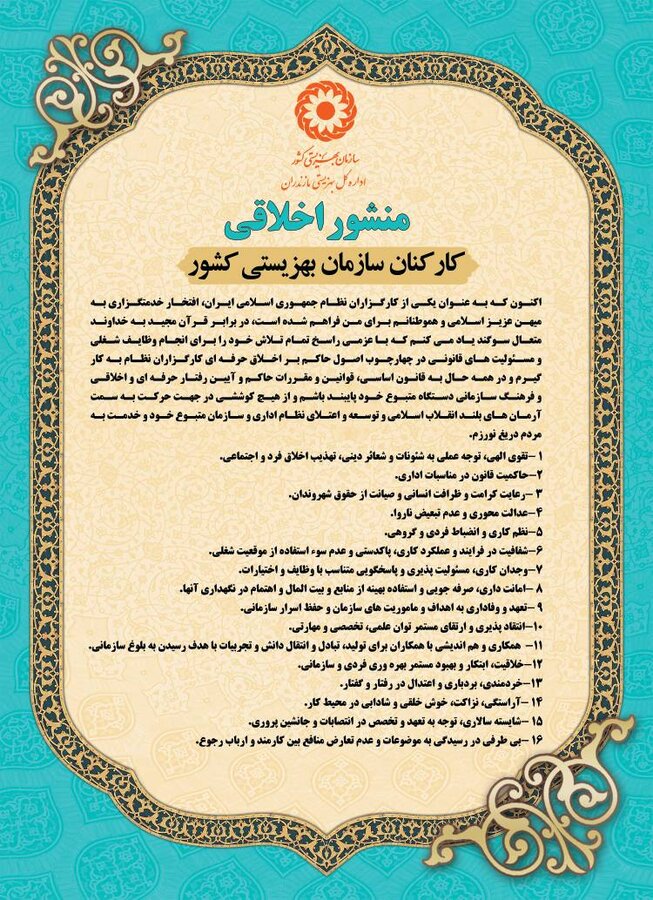 سازمان بهزیستی کشور
اداره کل بهزیستی مازندران
منشور اخلاقی
کارکنان سازمان بهزیستی کشور
اکنون که به عنوان یکی از کارگزاران نظام جمهوری اسلامی ایران، افتخار خدمتگزاری به
میهن عزیز اسلامی و هموطنانم برای من فراهم شده است، در برابر قرآن مجید به خداوند
متعال سوگند یاد می کنم که با عزمی راسخ تمام تلاش خود را برای انجام وظایف شغلی
و مسئولیت های قانونی در چهارچوب اصول حاکم بر اخلاق حرفه ای کارگزاران نظام به کار
گیرم و در همه حال به قانون اساسی، قوانین و مقررات حاکم و آیین رفتار حرفه ای و اخلاقی
و فرهنگ سازمانی دستگاه متبوع خود پایبند باشم و از هیچ کوششی در جهت حرکت به سمت
آرمان های بلند انقلاب اسلامی و توسعه و اعتلای نظام اداری و سازمان متبوع خود و خدمت به
مردم دریغ نورزم.
۱ –تقوی الهی، توجه عملی به شئونات و شعائر دینی، تهذیب اخلاق فرد و اجتماعی.
۲–حاکمیت قانون در مناسبات اداری.
۳ –رعایت کرامت و ظرافت انسانی و صیانت از حقوق شهروندان.
۴–عدالت محوری و عدم تبعیض ناروا.
۵–نظم کاری و انضباط فردی و گروهی.
۶–شفافیت در فرایند و عملکرد کاری، پاکدستی و عدم سوء استفاده از موقعیت شغلی.
۷–وجدان کاری، مسئولیت پذیری و پاسخگویی متناسب با وظایف و اختیارات.
۸ –امانت داری، صرفه جویی و استفاده بهینه از منابع و بیت المال و اهتمام در نگهداری آنها.
۹ –تعهد و وفاداری به اهداف و ماموریت های سازمان و حفظ اسرار سازمانی.
۱۰–انتقاد پذیری و ارتقای مستمر توان علمی، تخصصی و مهارتی.
۱۱– همکاری و هم اندیشی با همکاران برای تولید، تبادل و انتقال دانش و تجربیات با هدف رسیدن به بلوغ سازمانی.
۱۲–خلاقیت، ابتکار و بهبود مستمر بهره وری فردی و سازمانی.
۱۳–خردمندی، بردباری و اعتدال در رفتار و گفتار.
۱۴ –آراستگی، نزاکت، خوش خلقی و شادابی در محیط کار.
۱۵ –شایسته سالاری، توجه به تعهد و تخصص در انتصابات و جانشین پروری.
۱۶ –بی طرفی در رسیدگی به موضوعات و عدم تعارض منافع بین کارمند و ارباب رجوع.